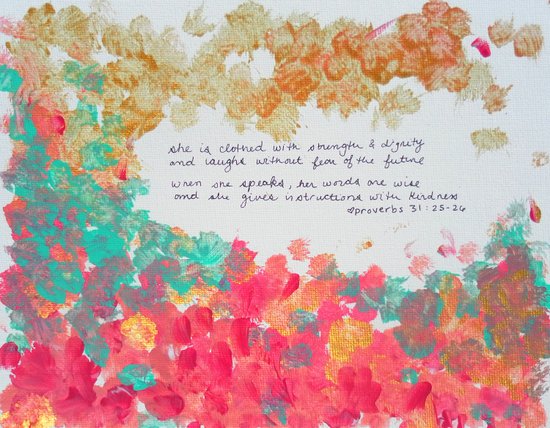 she is clothed with strength & dignity
and laughs without fear of the future
when she speaks, her words are wise
and she gives instructions with kindness
proverbs 31:25-26